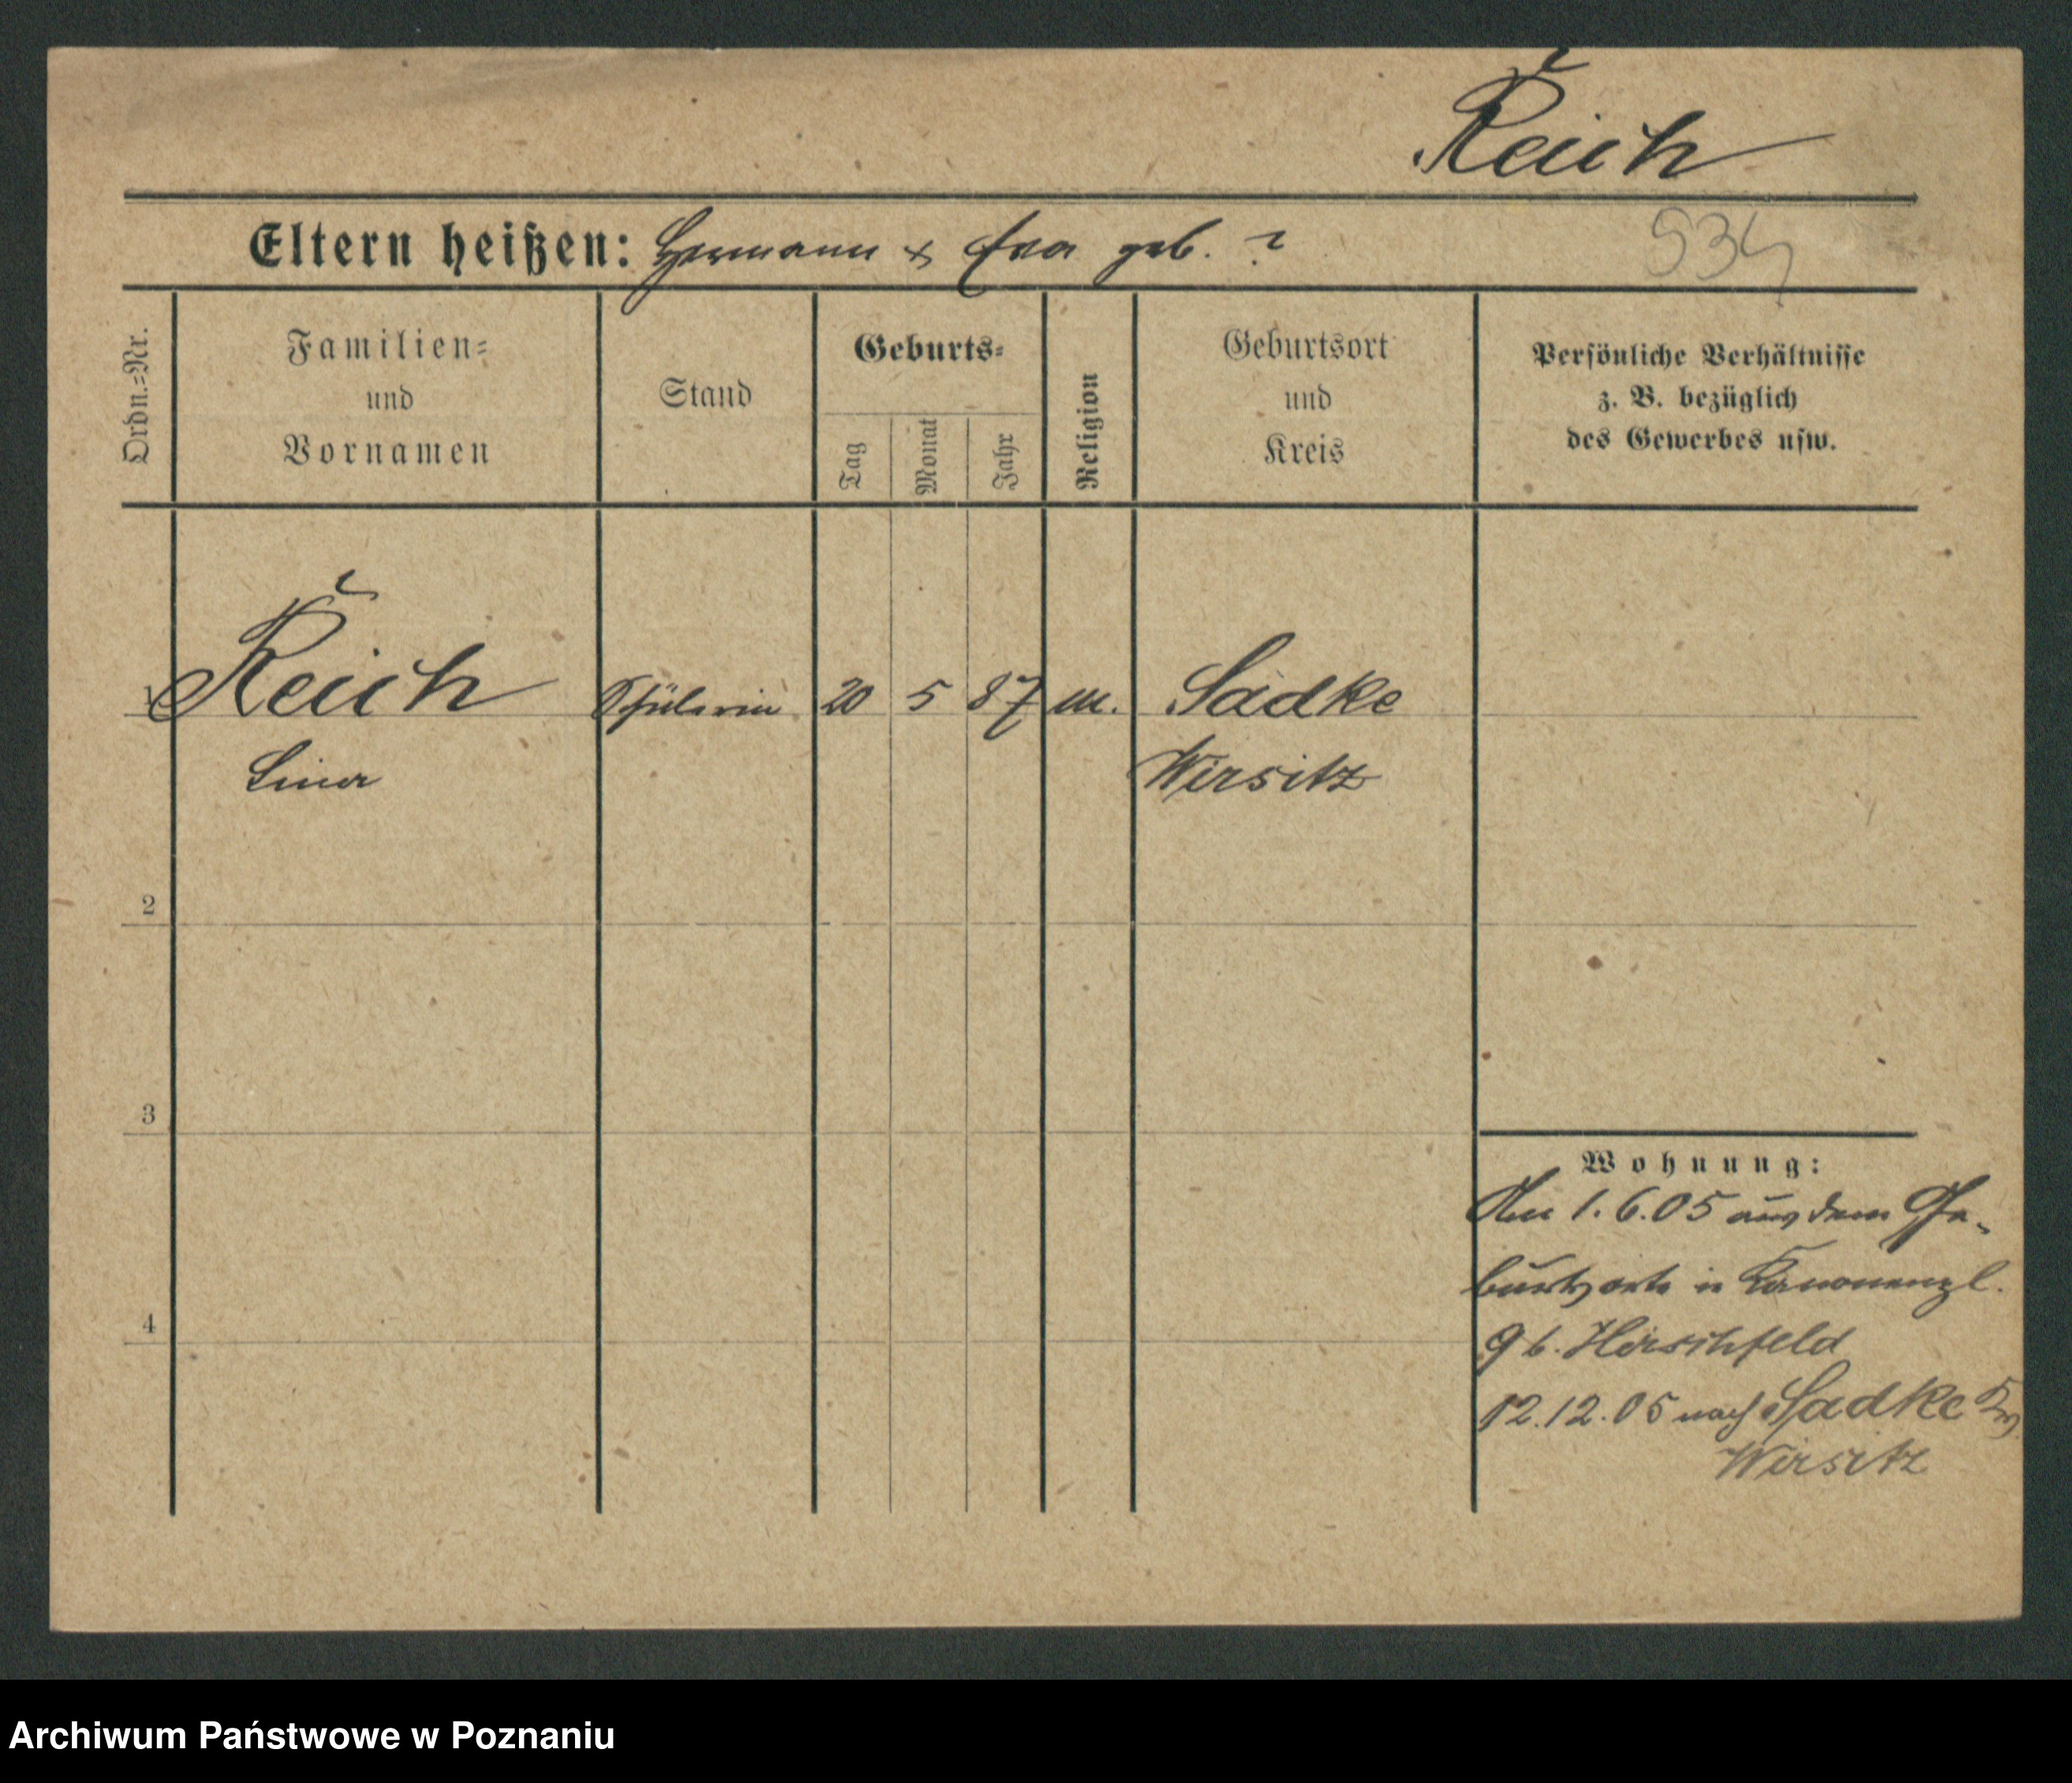 Reich
Eltern heißen: Hermann & Eva geb. ?
934
Ordn.-Nr.
Familien-
und
Vornamen
Stand
Geburts-
Tag
Monat
Jahr
Religion
Geburtsort
und
Kreis
Persönliche Verhältnisse
z. B. bezüglich
des Gewerbes usw.
1 Reich Schülerin 20 5 87 m. Sadke
Lina Wirsitz
2
3
4
Wohnung:
Am 1.6.05 aus dem Ge-
burtsorte in Kanonenpl.
9 b. Hirschfeld
12.12.05 nach Sadke Krs
Wirsitz
Archiwum Państwowe w Poznaniu